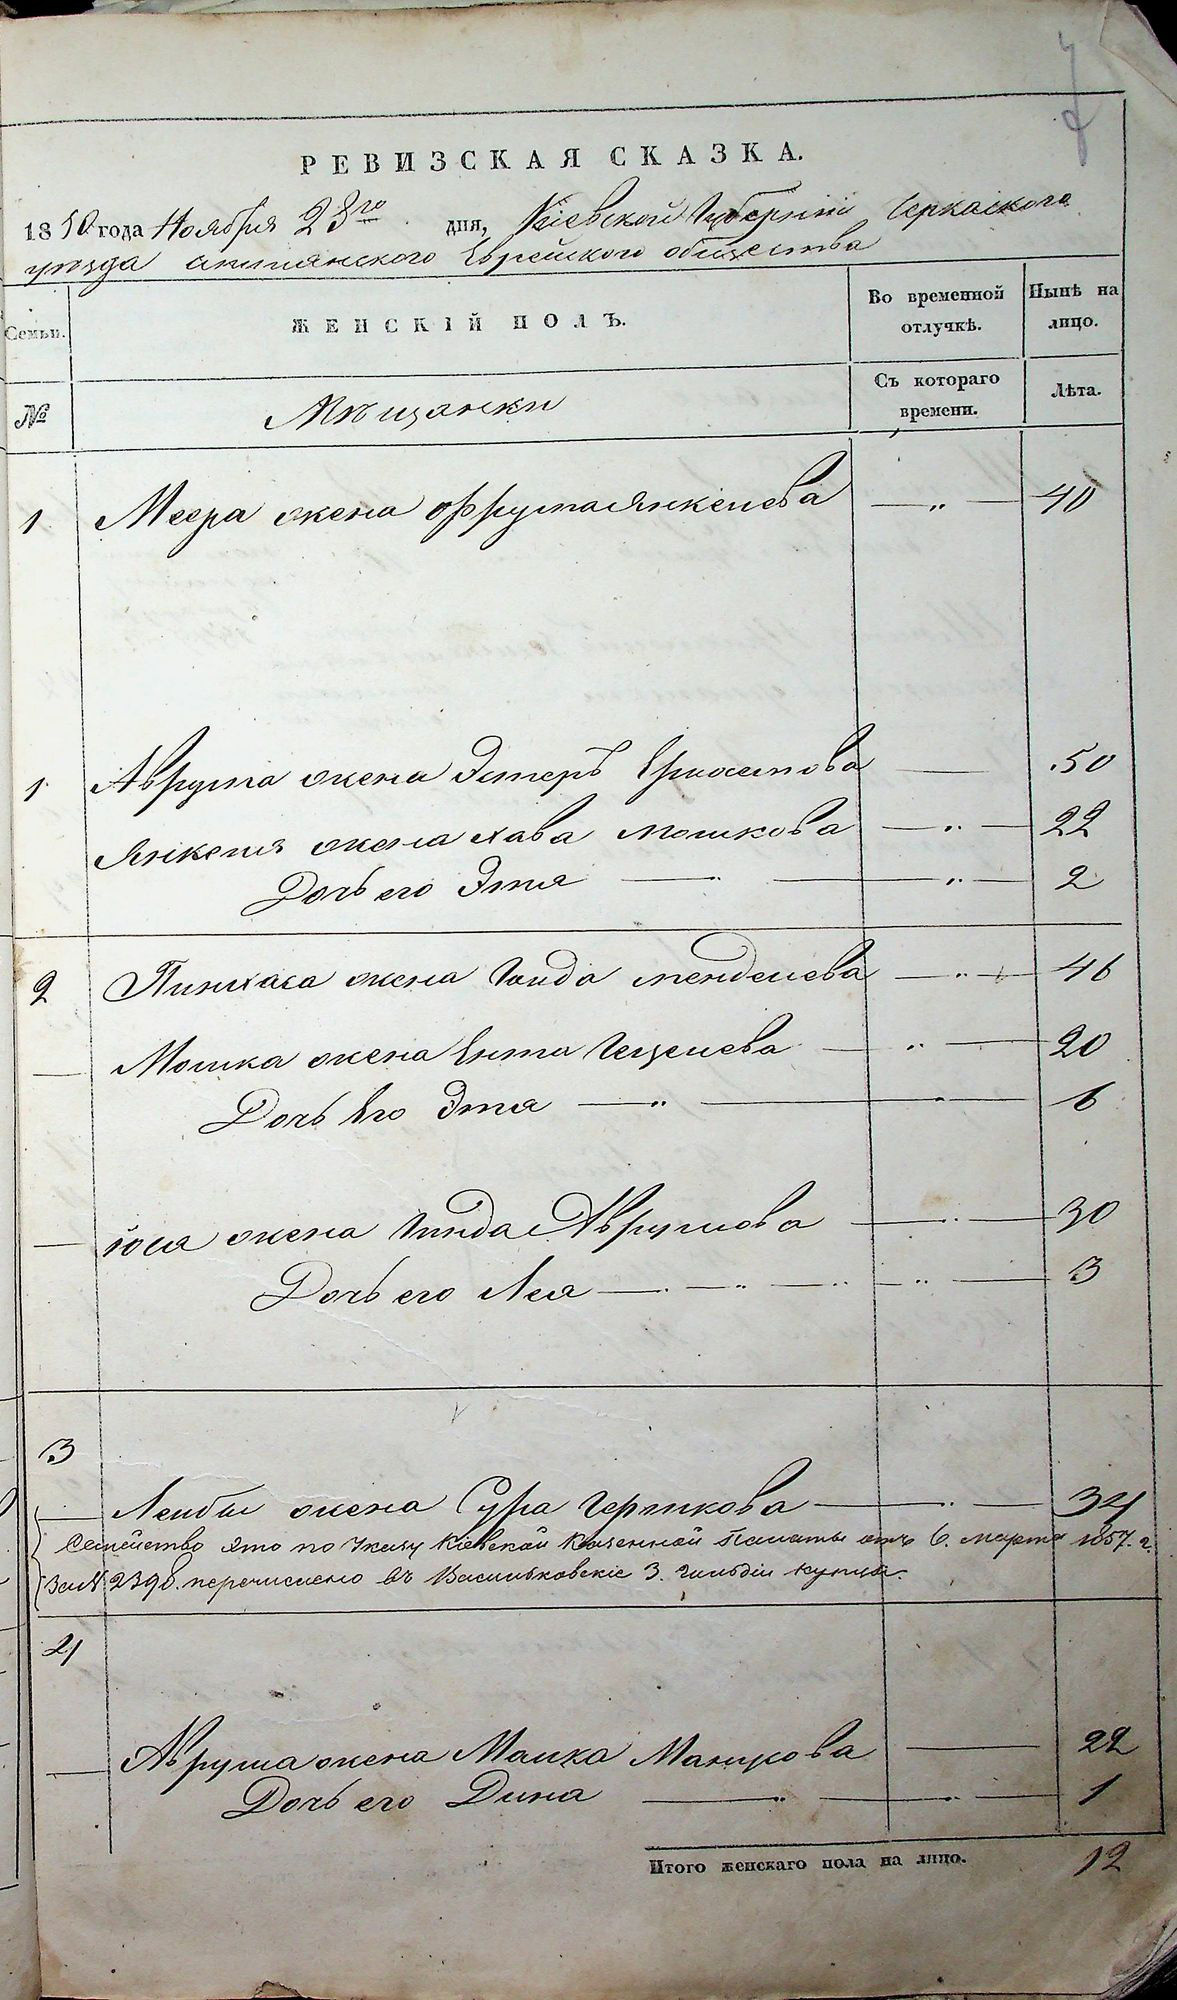 7
РЕВИЗСКАЯ СКАЗКА.
1850 года Ноября 23го дня, Кіевской Губерніи Черкаскаго
уѣзда Еврейскаго общества
Семьи.
ЖЕНСКІЙ ПОЛЪ.
Во временной отлучкѣ.
Нынѣ на лицо.
№
Мѣщанки
Съ котораго времени.
Лѣта.
1 Меера жена Фрума Янкелева — „ — 40
1 Аврума жена Эстеръ — 50
Янкеля жена Хава Мошкова — „ — 22
Дочь его Этя — „ — 2
2 Пинхаса жена Менделева — „ — 46
— Мошка жена Ента — „ — 20
Дочь Его Этя — „ — 6
— Іося жена Аврумова — „ — 30
Дочь его Лея — „ — 3
3
— Лейбы жена Сура Гершкова — „ — 34
Семейство это по Указу Кіевской Казенной Палаты отъ 6. марта 1857. г.
за № 2398. перечислено въ Васильковскіе 3. гильдіи купцы.
4
— Аврума жена Малка — 22
Дочь его Дина — „ — 1
Итого женскаго пола на лицо. 12